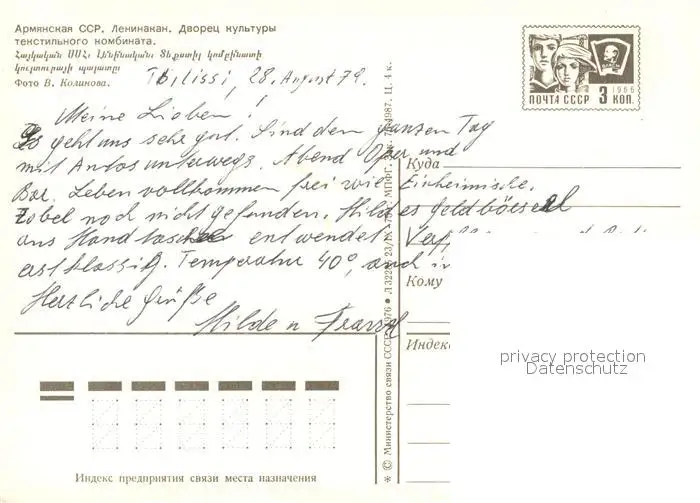 Армянская ССР. Ленинакан. Дворец культуры
текстильного комбината.
Հայկական ՍՍՀ. Լենինական. Տեքստիլ կոմբինատի
կուլտուրայի պալատը
Фото В. Коликова.
ПОЧТА СССР 3 КОП.
1966
Tbilissi, 28. August 79.
Meine Lieben!
Es geht uns sehr gut. Sind den ganzen Tag
mit Autos unterwegs. Abend Oper und
Bar. Leben vollkommen frei wie Einheimische.
Zobel noch nicht gefunden. Hildes Geldbörserl
aus Handtasche entwendet.
erstklassig. Temperatur 40°, auch in
Herzliche Grüße
Hilde u Franzl
Куда
Кому
Индекс
Индекс предприятия связи места назначения
* © Министерство связи СССР. 1976 • МПФГ. Ц. 4 к.
privacy protection
Datenschutz